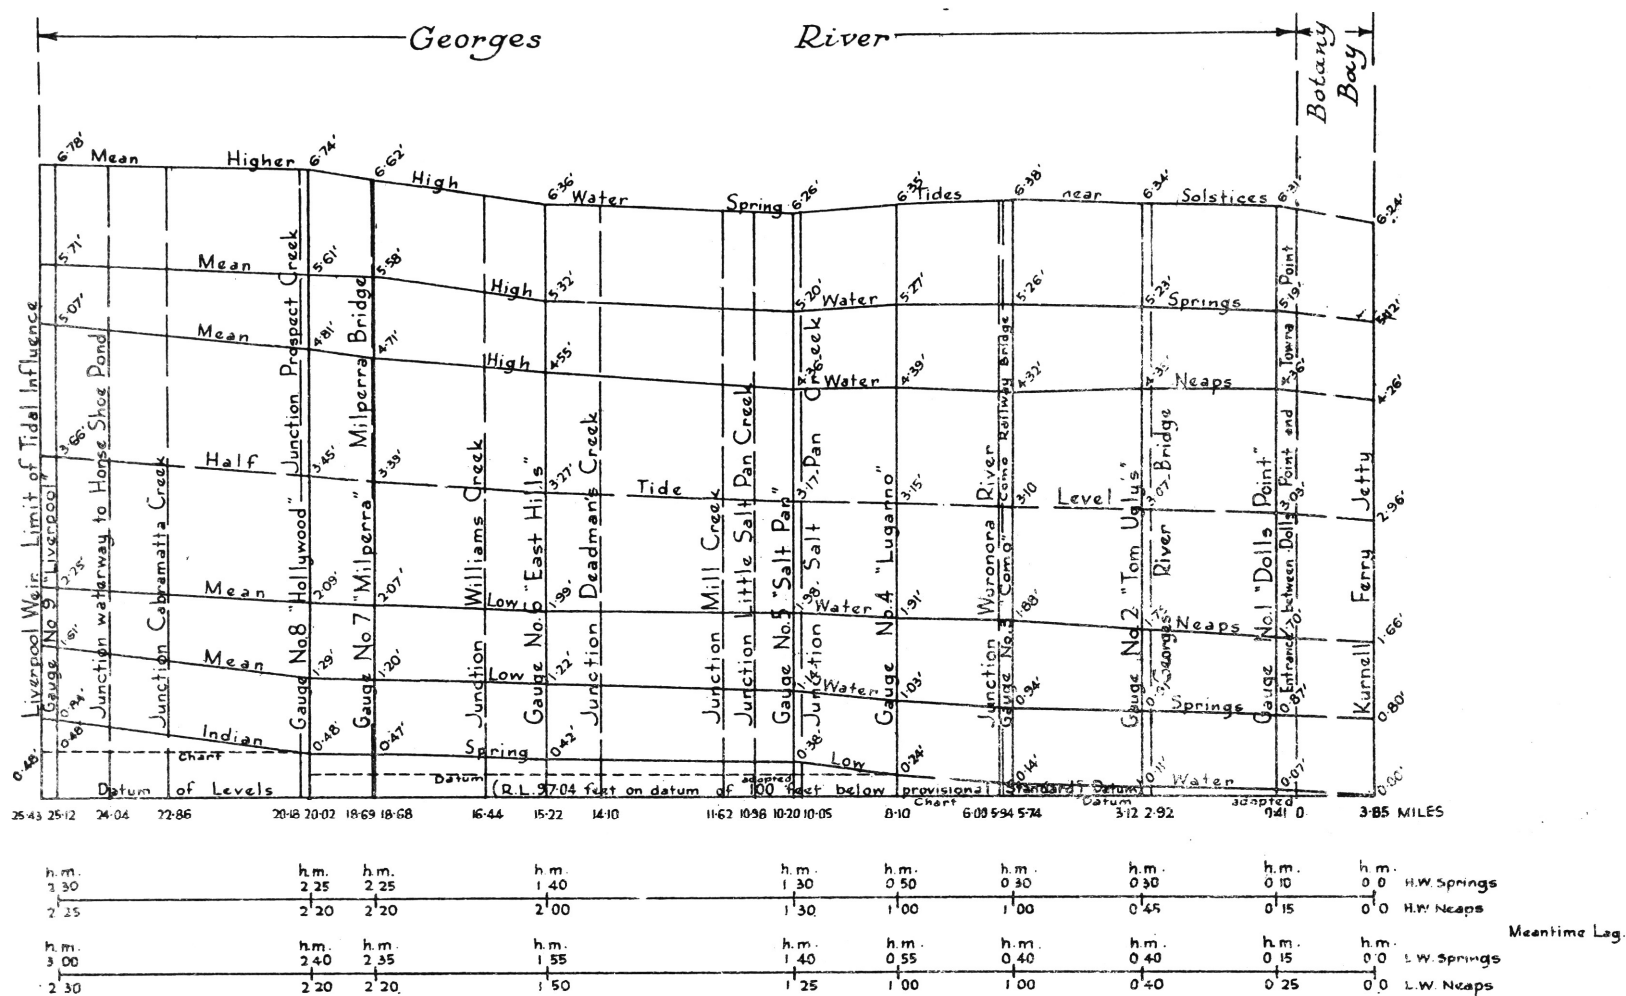 Georges River
Botany Bay
Mean Higher High Water Spring Tides near Solstices
6·78' 6·74' 6·62' 6·36' 6·26' 6·35' 6·38' 6·34' 6·31' 6·24'
Mean High Water Springs
5·71' 5·61' 5·58' 5·32' 5·20' 5·27' 5·26' 5·23' 5·19'
Mean High Water Neaps
5·07' 4·81' 4·71' 4·55' 4·39' 4·32' 4·36' 4·26'
Half Tide Level
3·66' 3·45' 3·39' 3·27' 3·17 3·15' 3·10 3·07 2·96'
Mean Low Water Neaps
2·25' 2·09' 2·07' 1·99' 1·98 1·91' 1·88' 1·70' 1·66'
Mean Low Water Springs
1·61' 1·29' 1·20' 1·22' 1·03' 0·94' 0·87' 0·80'
Indian Spring Low Water
0·84' 0·48' 0·47' 0·42' 0·38 0·24' 0·14' 0·11' 0·07' 0·00'
0·48' 0·48'
Chart Datum adopted
Chart Datum adopted
Datum of Levels (R.L. 97·04 feet on datum of 100 feet below provisional Standard Datum)
Liverpool Weir Limit of Tidal Influence
Gauge No 9 "Liverpool"
Junction waterway to Horse Shoe Pond
Junction Cabramatta Creek
Junction Prospect Creek
Gauge No 8 "Hollywood"
Milperra Bridge
Gauge No 7 "Milperra"
Junction Williams Creek
Gauge No. 6 "East Hills"
Junction Deadman's Creek
Junction Mill Creek
Junction Little Salt Pan Creek
Gauge No. 5 "Salt Pan"
Junction Salt Pan Creek
Gauge No. 4 "Lugarno"
Junction Woronora River
Gauge No. 3 "Como" Como Railway Bridge
Gauge No. 2 "Tom Ugly's"
Georges River Bridge
Gauge No. 1 "Dolls Point"
Entrance between Dolls Point and Towra Point
Kurnell Ferry Jetty
25·43 25·12 24·04 22·86 20·18 20·02 18·69 18·68 16·44 15·22 14·10 11·62 10·98 10·20 10·05 8·10 6·03 5·94 5·74 3·12 2·92 0·41 0 3·85 MILES
h.m. h.m. h.m. h.m. h.m. h.m. h.m. h.m. h.m. h.m.
2 30 2 25 2 25 1 40 1 30 0 50 0 30 0 30 0 10 0 0 H.W. Springs
2 25 2 20 2 20 2 00 1 30 1 00 1 00 0 45 0 15 0 0 H.W. Neaps
Meantime Lag.
h.m. h.m. h.m. h.m. h.m. h.m. h.m. h.m. h.m. h.m.
3 00 2 40 2 35 1 55 1 40 0 55 0 40 0 40 0 15 0 0 L.W. Springs
2 30 2 20 2 20 1 50 1 25 1 00 1 00 0 40 0 25 0 0 L.W. Neaps